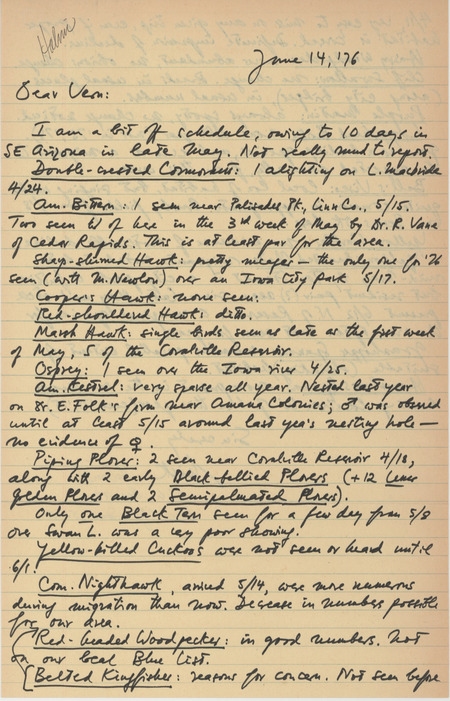 Halmi
June 14, '76
Dear Vern:
I am a bit off schedule, owing to 10 days in
SE Arizona in late May. Not really much to report.
Double-crested Cormorant: 1 alighting on L. Macbride
4/24.
Am. Bittern: 1 seen near Palisades Pk., Linn Co., 5/15.
Two seen W of here in the 3rd week of May by Dr. R. Vane
of Cedar Rapids. This is at least par for the area.
Sharp-shinned Hawk: pretty meager — the only one for '76
seen (with M. Newlon) over an Iowa City park 5/17.
Cooper's Hawk: none seen.
Red-shouldered Hawk: ditto.
Marsh Hawk: single birds seen as late as the first week
of May, S of the Coralville Reservoir.
Osprey: 1 seen over the Iowa river 4/25.
Am. Kestrel: very sparse all year. Nested last year
on Dr. E. Folk's farm near Amana Colonies; ♂ was observed
until at least 5/15 around last year's nesting hole —
no evidence of ♀.
Piping Plover: 2 seen near Coralville Reservoir 4/18,
along with 2 early Black-bellied Plovers (+12 Lesser
Golden Plover and 2 Semipalmated Plovers).
Only one Black Tern seen for a few days from 5/8
over Swan L. was a very poor showing.
Yellow-billed Cuckoos were not seen or heard until
6/1.
Com. Nighthawk, arrived 5/14, were more numerous
during migration than now. Decrease in numbers possible
for our area.
Red-headed Woodpecker: in good numbers. Not
on our local Blue List.
Belted Kingfisher: reasons for concern. Not seen before